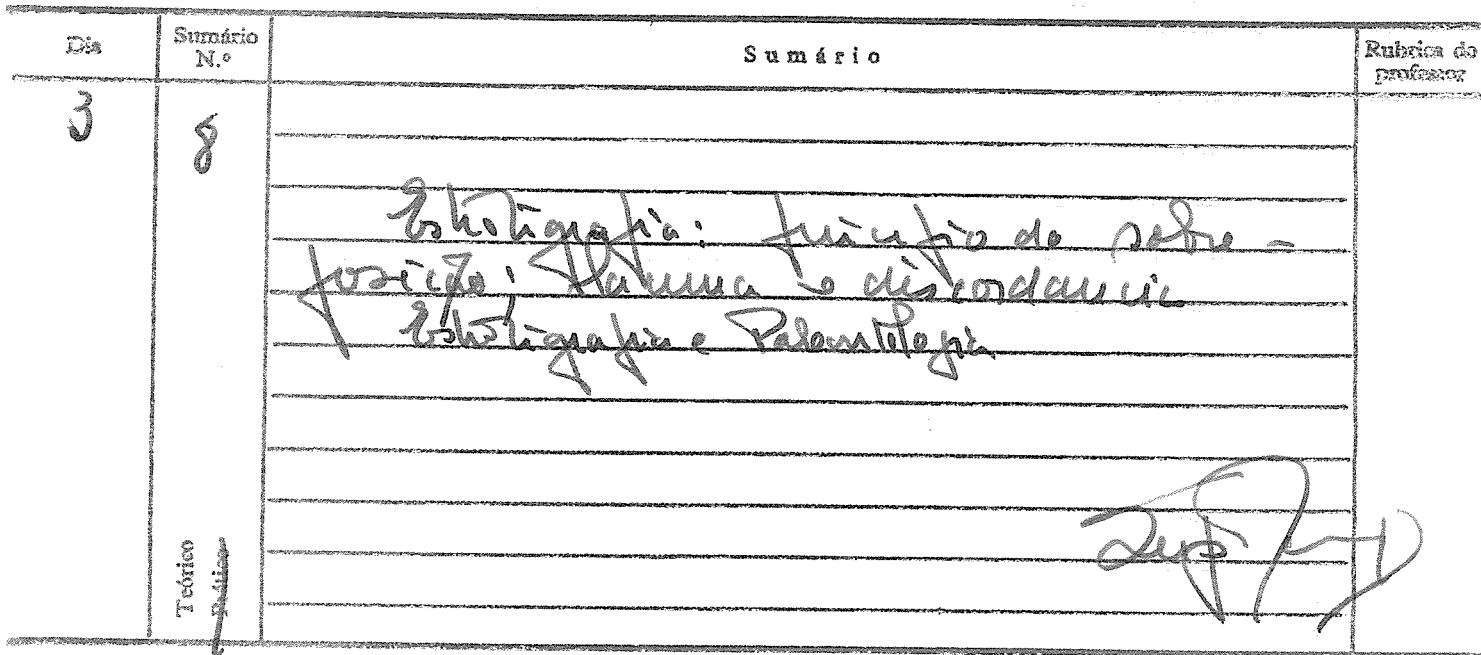 Dia
Sumário N.º
Sumário
Rubrica do professor
3
8
Estratigrafia: princípio de sobre-
posição: e discordancia
Estratigrafia e Paleontologia
Teórico
Prático